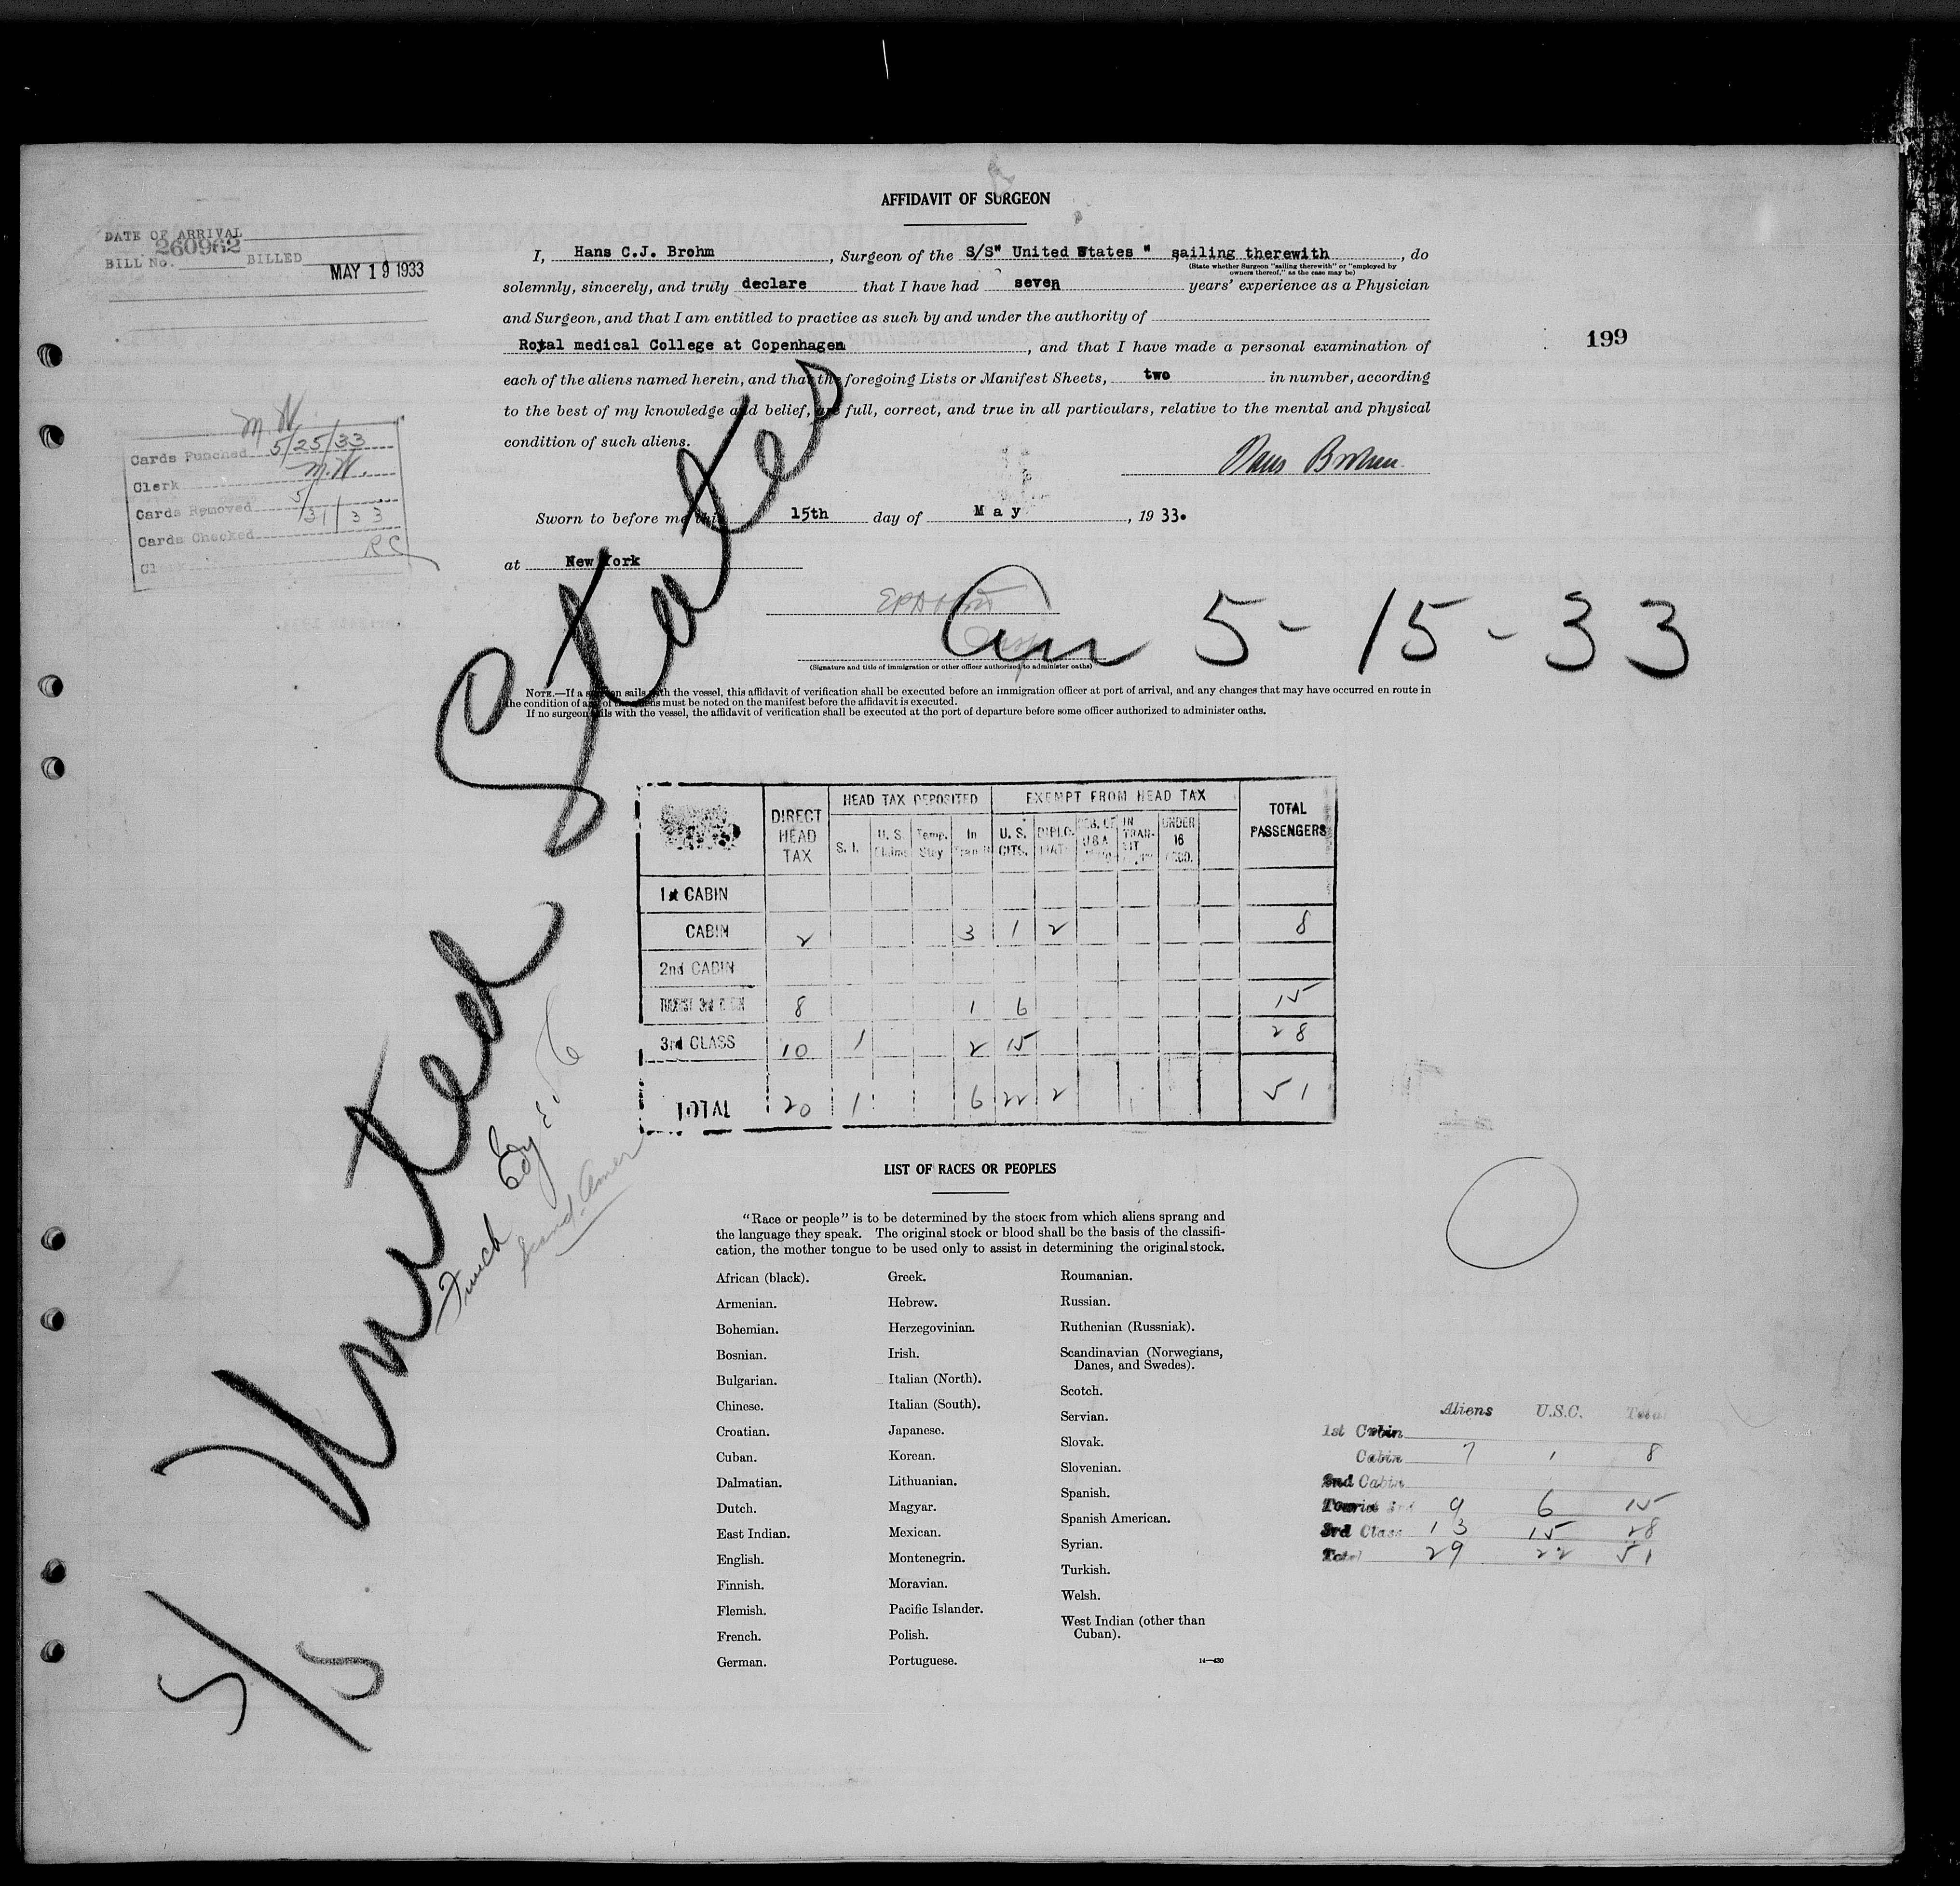 AFFIDAVIT OF SURGEON
DATE OF ARRIVAL
260962
BILL No. BILLED
MAY 19 1933
I, Hans C.J. Brohm, Surgeon of the S/S" United States " sailing therewith, do
(State whether Surgeon "sailing therewith" or "employed by
owners thereof," as the case may be)
solemnly, sincerely, and truly declare that I have had seven years' experience as a Physician
and Surgeon, and that I am entitled to practice as such by and under the authority of
Royal medical College at Copenhagen, and that I have made a personal examination of
199
each of the aliens named herein, and that the foregoing Lists or Manifest Sheets, two in number, according
to the best of my knowledge and belief, are full, correct, and true in all particulars, relative to the mental and physical
condition of such aliens.
Hans Brohm
M.W.
Cards Punched 5/25/33
Clerk M.W.
Cards Removed 5/
Cards Checked 31/33
Clerk RC
Sworn to before me this 15th day of May, 1933.
at New York
Arr 5-15-33
(Signature and title of immigration or other officer authorized to administer oaths)
NOTE.—If a surgeon sails with the vessel, this affidavit of verification shall be executed before an immigration officer at port of arrival, and any changes that may have occurred en route in
the condition of any of the aliens must be noted on the manifest before the affidavit is executed.
If no surgeon sails with the vessel, the affidavit of verification shall be executed at the port of departure before some officer authorized to administer oaths.
United States
5/5
Scand. Amer
DIRECT HEAD TAX
HEAD TAX DEPOSITED
EXEMPT FROM HEAD TAX
TOTAL PASSENGERS
S. I. U. S. Claims Temp. Stay In Transit U. S. CITS. DIPLO- MAT RES. OF USA IN TRAN- SIT UNDER 16
1st CABIN
CABIN 2 3 1 2 8
2nd CABIN
TOURIST 3rd CABIN 8 1 6 15
3rd CLASS 10 1 2 15 28
TOTAL 20 1 6 22 2 51
LIST OF RACES OR PEOPLES
"Race or people" is to be determined by the stock from which aliens sprang and
the language they speak. The original stock or blood shall be the basis of the classifi-
cation, the mother tongue to be used only to assist in determining the original stock.
African (black).
Armenian.
Bohemian.
Bosnian.
Bulgarian.
Chinese.
Croatian.
Cuban.
Dalmatian.
Dutch.
East Indian.
English.
Finnish.
Flemish.
French.
German.
Greek.
Hebrew.
Herzegovinian.
Irish.
Italian (North).
Italian (South).
Japanese.
Korean.
Lithuanian.
Magyar.
Mexican.
Montenegrin.
Moravian.
Pacific Islander.
Polish.
Portuguese.
Roumanian.
Russian.
Ruthenian (Russniak).
Scandinavian (Norwegians,
Danes, and Swedes).
Scotch.
Servian.
Slovak.
Slovenian.
Spanish.
Spanish American.
Syrian.
Turkish.
Welsh.
West Indian (other than
Cuban).
14—430
Aliens U.S.C. Total
1st Cabin
Cabin 7 1 8
2nd Cabin
Tourist 3rd 9 6 15
3rd Class 13 15 28
Total 29 22 51